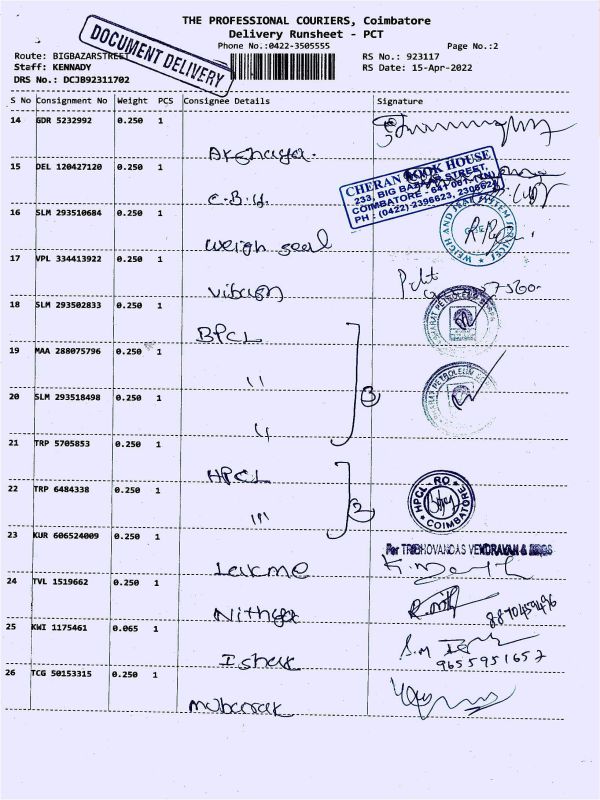 THE PROFESSIONAL COURIERS, Coimbatore
Delivery Runsheet - PCT
Phone No.:0422-3505555
Page No.:2
DOCUMENT DELIVERY
Route: BIGBAZARSTREET
RS No.: 923117
Staff: KENNADY
RS Date: 15-Apr-2022
DRS No.: DCJB92311702
S No Consignment No Weight PCS Consignee Details Signature
14 GDR 5232992 0.250 1
Akshaya.
15 DEL 120427120 0.250 1
C.B.H.
CHERAN BOOK HOUSE
233, BIG BAZAAR STREET,
COIMBATORE - 641 001 (TN)
PH : (0422) 2396623,
16 SLM 293510684 0.250 1
weigh seal
WEIGH AND SEAL SYSTEM SERVICES
17 VPL 334413922 0.250 1
18 SLM 293502833 0.250 1
BPCL
BHARAT PETROLEUM
19 MAA 288075796 0.250 1
"
3
BHARAT PETROLEUM
20 SLM 293518498 0.250 1
"
21 TRP 5705853 0.250 1
HPCL
22 TRP 6484338 0.250 1
2
HPCL - RO
COIMBATORE
23 KUR 606524009 0.250 1
Lakme
For TRIBHOVANDAS VENDRAVAN & BROS
24 TVL 1519662 0.250 1
Nithya
8870459496
25 KWI 1175461 0.065 1
Ishak
9655951657
26 TCG 50153315 0.250 1
mubarak